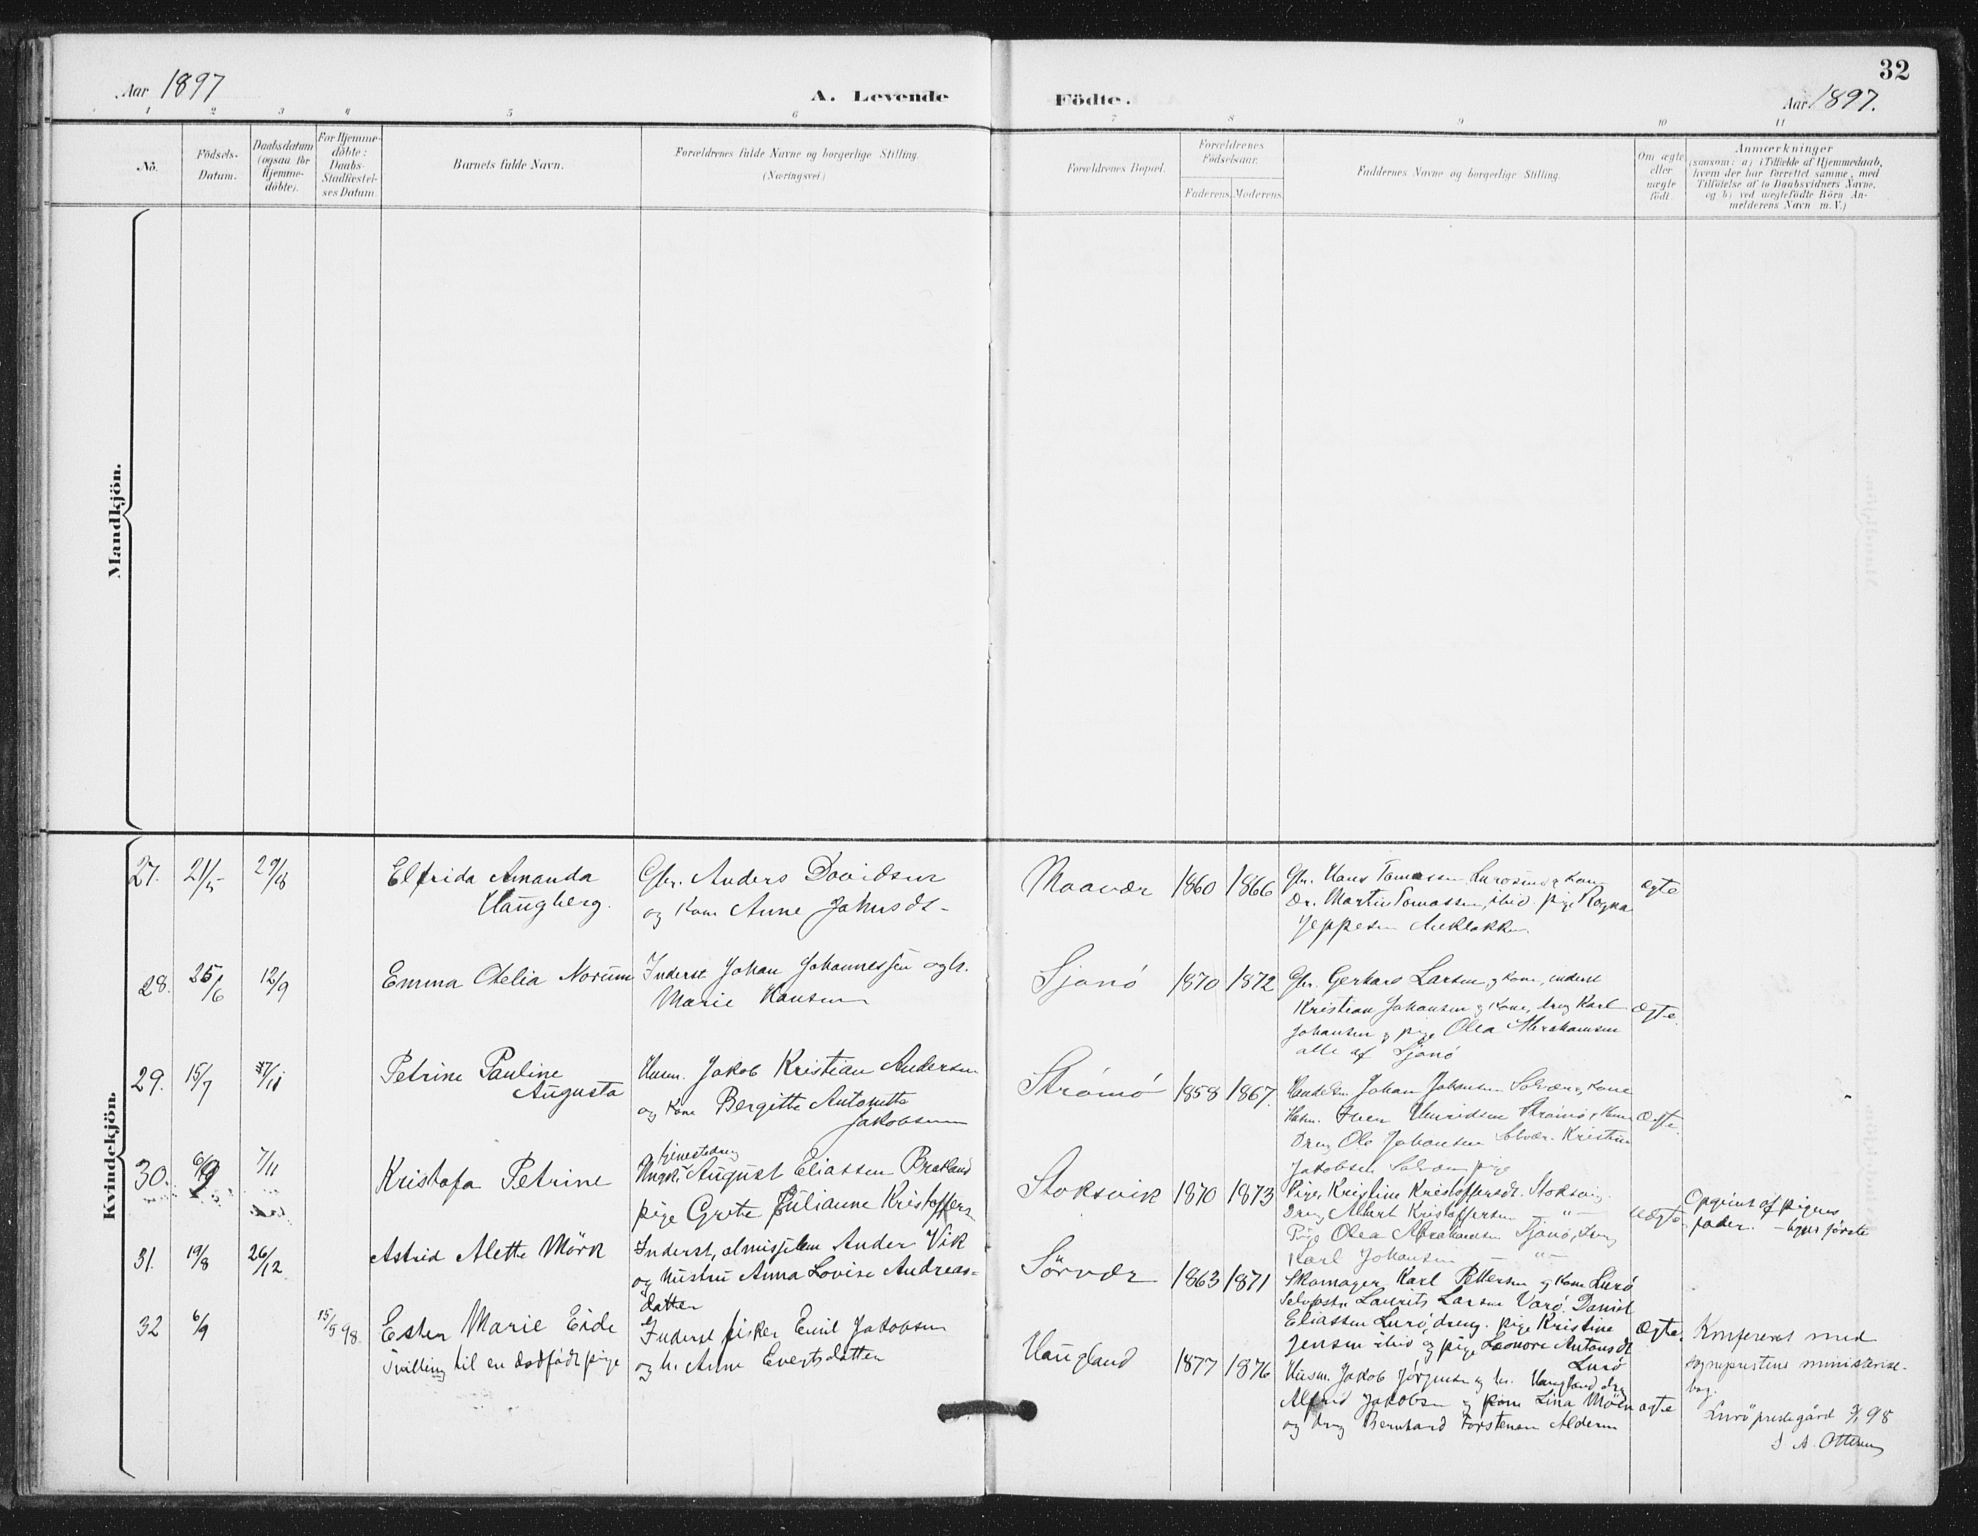 Aar 1897
A. Levende
Födte.
32
Aar 1897.
1 2 3 4 5 6 7 8 9 10 11
No.
Födsels-
Datum.
Daabsdatum
(ogsaa for
Hjemme-
döbte).
For Hjemme-
döbte:
Daabs-
Stadfæstel-
ses Datum
Barnets fulde Navn.
Forældrenes fulde Navne og borgerlige Stilling.
(Næringsvei.)
Forældrenes Bopæl.
Forældrenes
Födselsaar.
Faderens. Moderens.
Faddernes Navne og borgerlige Stilling.
Om ægte
eller
uægte
födt.
Anmærkninger
(saasom: a) i Tilfælde af Hjemmedaab,
hvem der har forrettet samme, med
Tilföielse af to Daabsvidners Navne,
og b) ved uægtefödte Börn An-
melderens Navn m. V.)
Mandkjön.
Kvindekjön.
27. 21/5 29/8
Elfrida Amanda
Haugberg.
Gbr. Anders Davidsen
og kone Anne Jakobsdt.
Maavær 1860 1866
Gbr. Hans Tomassen og kone
Dr. Martin Tomassen, ibid. pige Ragna
Jeppesen
ægte
28. 25/6 12/9
Emma Otelia Norum
Inderst Johan Johannessen og h.
Marie Hansen
Sjonö 1870 1872
Gbr. Gerhard Larsen og kone, inderst
Kristian Johansen og kone, dreng Karl
Johansen og pige Olea Abrahamsen
alle af Sjonö
Ægte.
29. 15/7 7/11
Petrine Pauline
Augusta
Husm. Jakob Kristian Andersen
og kone Bergitte Antonette
Jakobsen
Strömö 1858 1867.
Johan Johansen Solvær og kone
Husm. Iver Strömö
Dreng Ole Johansen Solvær. Kristine
Jakobsen Solvær pige
Ægte.
30. 6/9 7/11
Kristofa Petrine
tjenestedreng
Ungk. August Eliassen Bratland
pige Grete Julianne Kristoffers.
Stoksvik 1870 1873
Pige Kristine Kristoffersdt. Stoksvig.
Dreng Albert Kristoffersen — " —
Pige Olea Abrahamsen Sjonö, dreng
Karl Johansen — " —
Uægte.
Opgivet af pigens
fader. — begges förste
31. 19/8 26/12
Astrid Alette Mörk
Inderst, almisselem Ander Vik
og hustru Anna Lovise Andreas-
datter
Sörvær 1863 1871
Skomager Karl Pettersen og kone Lurö
Laurits Larsen Varö. Daniel
Eliassen Lurö, dreng. pige Kristine
Jensen ibid og pige Leonore Antonsdt.
Lurö
Ægte.
32 6/9 15/5 98.
Ester Marie Eide
Tvilling til en dødfødt pige
Inderst fisker Emil Jakobsen
og h. Anne Evertsdatter
Haugland 1877 1876
Husm. Jakob Jörgensen og h. Haugland dreng
Alfred Jakobsen og kone Lina Möln
og dreng Bernhard Torstensen Alderen
ægte
Konfereret med
sogneprestens ministerial-
bog.
Lurö prestegård 98
S A. Ottesen